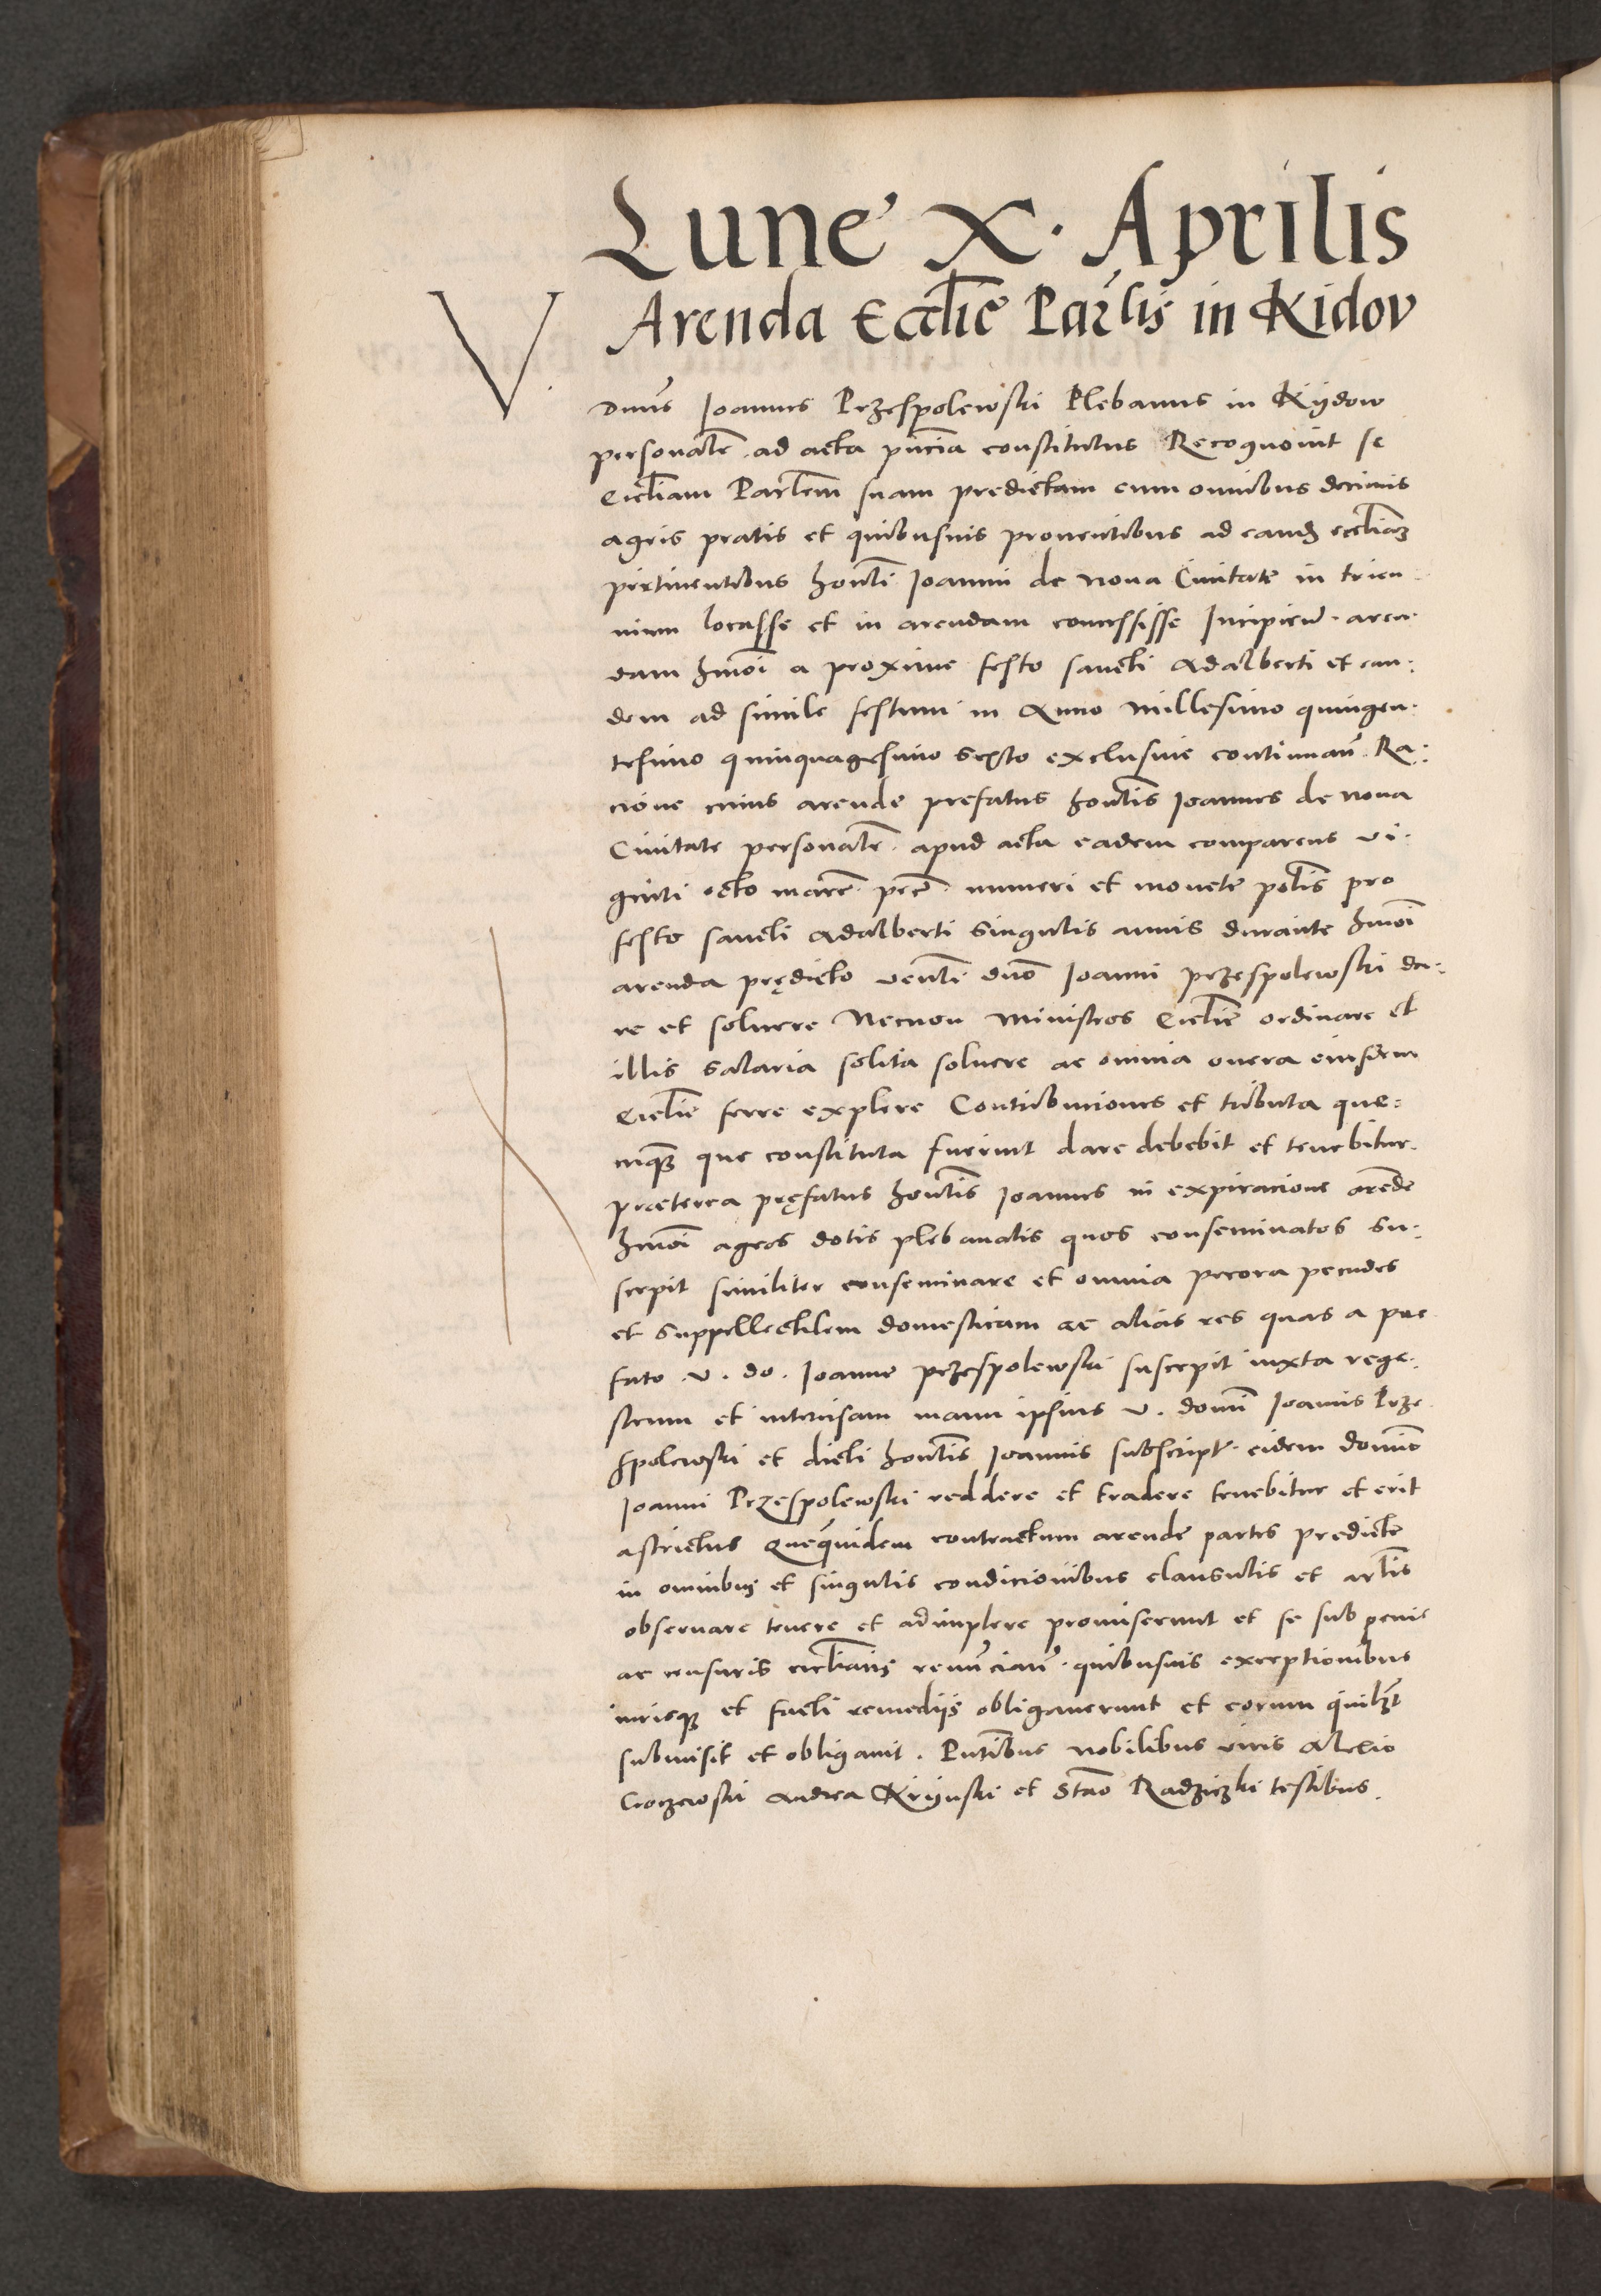 Lune X. Aprilis
Arenda Ecclie Parlis in Kidov
V.
Dnus Joannes Przespolewski Plebanus in Kydow
personalr ad acta pncia constitutus Recognovit se
Eccliam Parlem suam predictam cum omnibus decimis
agris pratis et quibusuis prouentibus ad eand eccliam
pertinentibus honti Joanni de Noua Ciuitate in trien-
nium locasse et in arendam concessisse Incipien. aren-
dam hmoi a proxime festo sancti Adalberti et ean:
dem ad simile festum in Anno Millesimo quingen:
tesimo quinquagesimo Sexto exclusiue continuan. Ra:
cione cuius arende prefatus hontis Joannes de Noua
Ciuitate personalr. apud acta eadem comparens vi-
ginti octo marc. pec. numeri et monete polis pro
festo sancti Adalberti Singulis annis durante hmoi
arenda prędicto venli dno Joanni Przespolewski da:
re et soluere Necnon Ministros Ecclie ordinare et
illis Salaria solita soluere ac omnia onera eiusdem
Ecclie ferre explere Contribuciones et tributa que:
cunq que constituta fuerint dare debebit et tenebitur.
Praeterea pręfatus hontis Joannes in expiracione arende
hmoi agros dotis plebanalis quos conseminatos Su:
scepit similiter conseminare et omnia pecora pecudes
et Suppellectilem domesticam ac alias res quas a pre
fato . V. do. Joanne Przespolewski suscepit iuxta rege:
strum et intercisam manu ipsius V. domi Joannis Prze
spolewski et dicti hontis Joannis subscript. eidem domino
Joanni Przespolewski reddere et tradere tenebitur et erit
astrictus Quequidem contractum arende partes predicte
in omnibus et singulis condicionibus clausulis et arlis
obseruare tenere et adimplere promiserunt et se sub penis
ac censuris eccliatis renuncian. quibusuis exceptionibus
iurisq et facti remediis obligauerunt et eorum quilibet
submisit et obligauit. Pntibus nobilibus viris Alexio
Andrea Kryski et Stao Radziczki testibus.